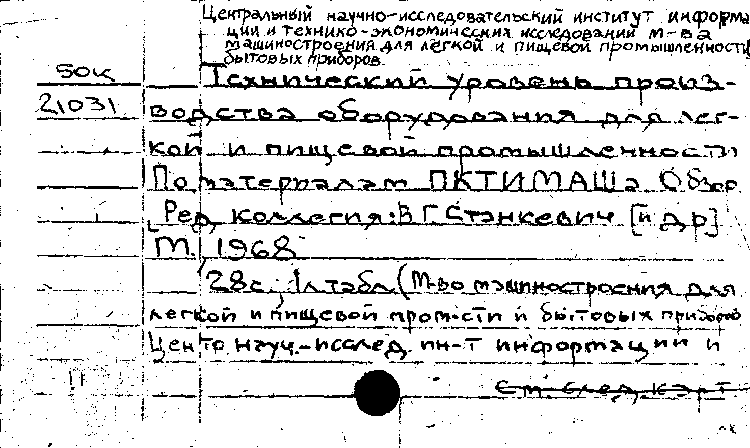 Центральный научно-исследовательский институт информа
ции и технико-экономических исследований М-ва
машиностроения для легкой и пищевой промышленности
бытовых приборов
50к Технический уровень произ-
21031 водства оборудования для лег-
кой и пищевой промышленности
По материалам ПКТИМАШа Обзор
Ред коллегия: В Г. Станкевич [и др]
М, 1968
28с, 1л табл (М-во машиностроения для
легкой и пищевой пром-сти и бытовых приборов
Центр науч-исслед ин-т информации и
См. след. карт